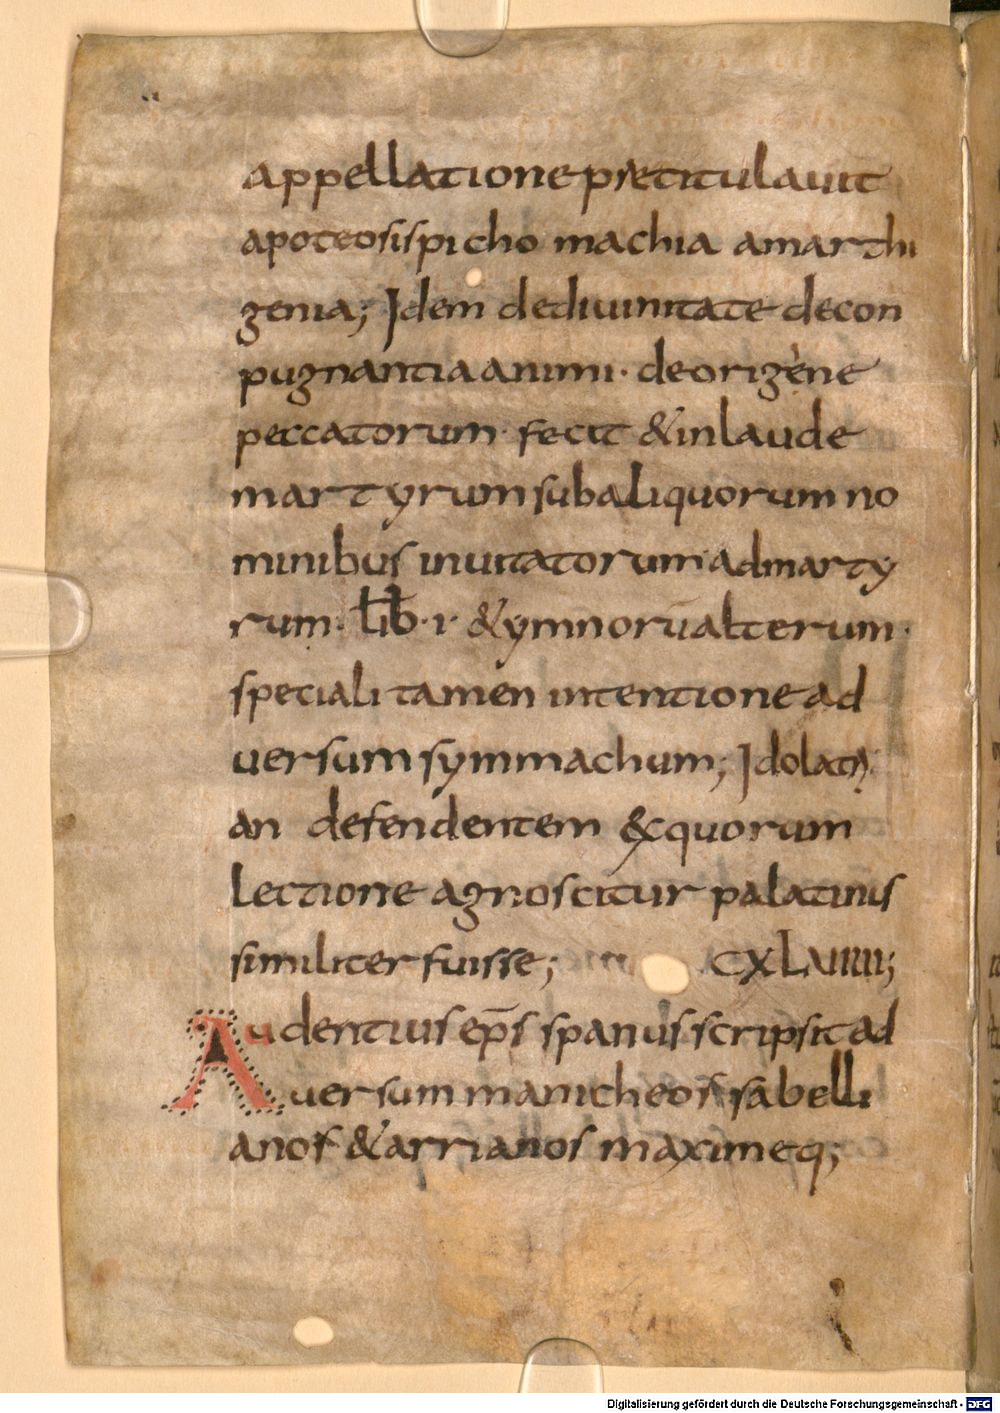 appellatione prętitulavit
apoteosispicho machia amarthi
genia; Idem dedivinitate decon
pugnantiaanimi· deorigène
peccatorum· fecit &inlaude
martyrumsubaliquorum no
minibus invitatorumadmarty
rum· lib̄·i· &ymnorūalterum·
speciali tamen intentione ad
versumsymmachum; Idolatr
an defendentem &cquorum
Lectione agnoscitur palatinus
similiter fuisse; CXLVIIII;
Audentius ep̄s spanus scripsit ad
versum manicheos sabelli
anos &arrianos maximeq;
Digitalisierung gefördert durch die Deutsche Forschungsgemeinschaft - DFG